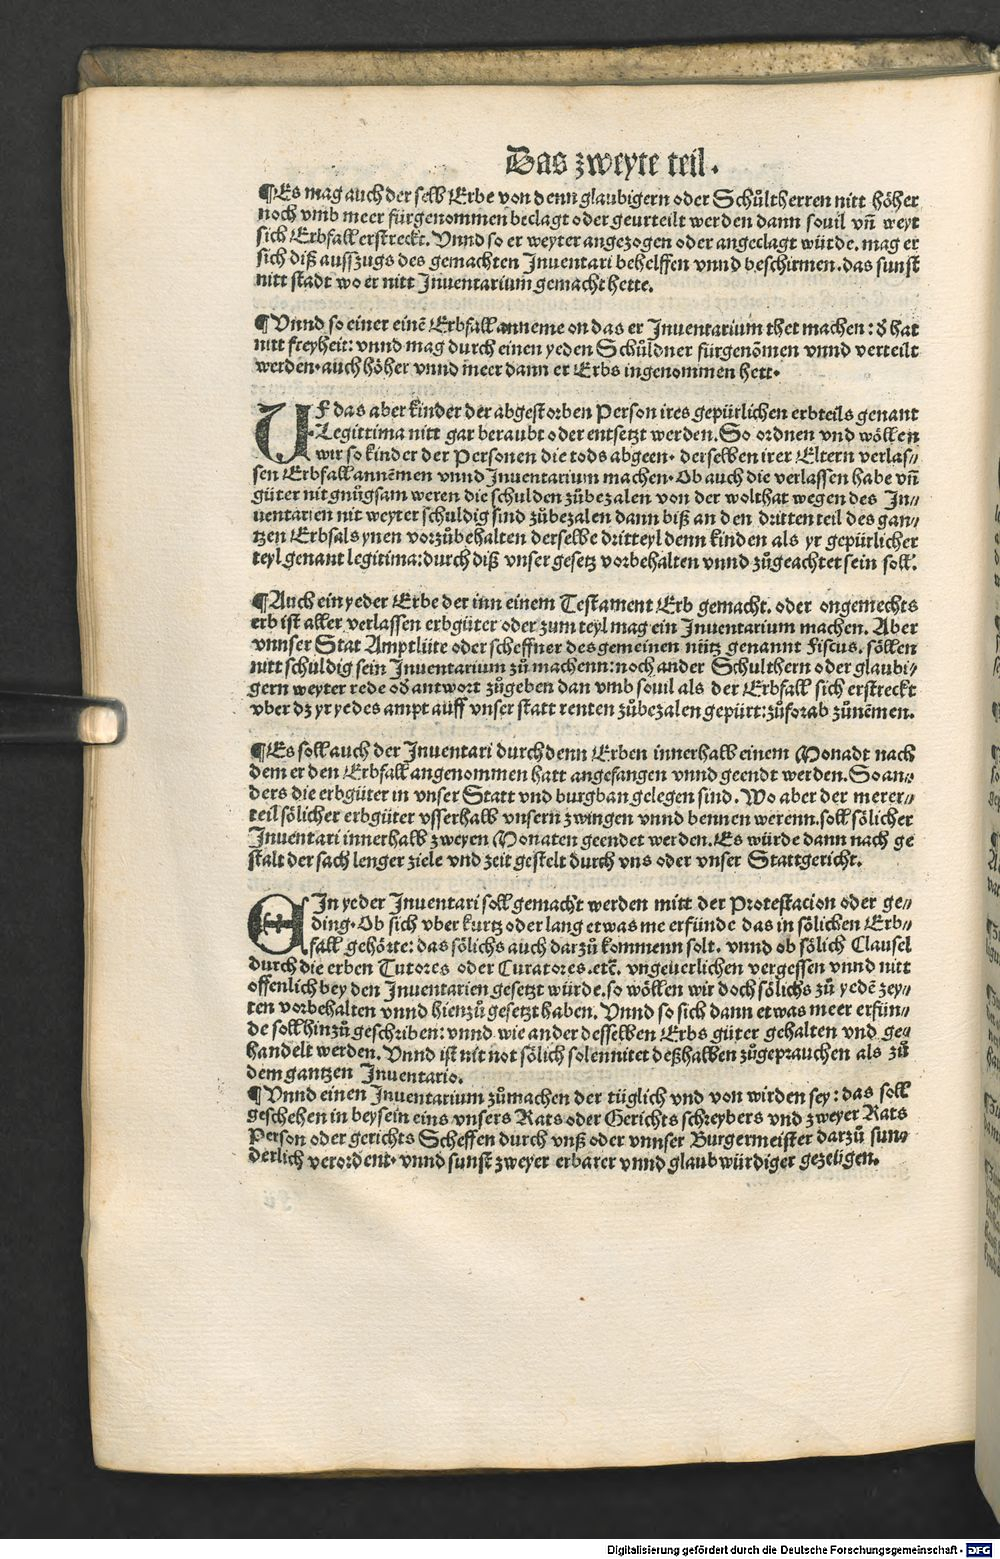 Das zweyte teil.
¶Es mag auch der selb Erbe von denn glaubigern oder Schůltherren nitt höher
noch vmb meer fürgenommen beclagt oder geurteilt werden dann souil vñ weyt
sich Erbfall erstreckt. Vnnd so er weyter angezogen oder angeclagt würde. mag er
sich diß ausszugs des gemachten Inuentari behelffen vnnd beschirmen. das sunst
nitt stadt wo er nitt Inuentarium gemacht hette.
¶Vnnd so einer einē Erbfall anneme on das er Inuentarium thet machen: d̓ hat
nitt freyheit: vnnd mag durch einen yeden Schůldner fürgenōmen vnnd verteilt
werden. auch höher vnnd meer dann er Erbs ingenommen hett.
UF das aber kinder der abgestorben Person ires gepürlichen erbteils genant
Legittima nitt gar beraubt oder entsetzt werden. So ordnen vnd wöllen
wir so kinder der Personen die tods abgeen. derselben irer Eltern verlas⸗
sen Erbfall annēmen vnnd Inuentarium machen. Ob auch die verlassen habe vñ
güter nit gnůgsam weren die schulden zůbezalen von der wolthat wegen des In⸗
uentarien nit weyter schuldig sind zůbezalen dann biß an den dritten teil des gan⸗
tzen Erbfals ynen vorzůbehalten derselbe dritteyl denn kinden als yr gepürlicher
teyl genant legitima: durch diß vnser gesetz vorbehalten vnnd zůgeachtet sein soll.
¶Auch ein yeder Erbe der inn einem Testament Erb gemacht. oder ongemechts
erb ist aller verlassen erbgüter oder zum teyl mag ein Inuentarium machen. Aber
vnnser Stat Amptlüte oder scheffner des gemeinen nütz genannt Fiscus. söllen
nitt schuldig sein Inuentarium zů machenn: noch ander Schulthern oder glaubi⸗
gern weyter rede od̓ antwort zůgeben dan vmb souil als der Erbfall sich erstreckt
vber dz yr yedes ampt auff vnser statt renten zůbezalen gepürt: zůforab zůnēmen.
¶Es soll auch der Inuentari durch denn Erben innerhalb einem Monadt nach
dem er den Erbfall angenommen hatt angefangen vnnd geendt werden. So an⸗
ders die erbgüter in vnser Statt vnd burgban gelegen sind. Wo aber der merer⸗
teil sölicher erbgüter vsserhalb vnsern zwingen vnnd bennen werenn. soll sölicher
Inuentari innerhalb zweyen Monaten geendet werden. Es würde dann nach ge
stalt der sach lenger ziele vnd zeit gestelt durch vns oder vnser Stattgericht.
EIn yeder Inuentari soll gemacht werden mitt der Protestacion oder ge⸗
ding. Ob sich vber kurtz oder lang etwas me erfünde das in sölichen Erb⸗
fall gehörte: das sölichs auch darzů kommenn solt. vnnd ob sölich Clausel
durch die erben Tutores oder Curatores. etc̄. vngeuerlichen vergessen vnnd nitt
offenlich bey den Inuentarien gesetzt würde. so wöllen wir doch sölichs zů yedē zey⸗
ten vorbehalten vnnd hienzů gesetzt haben. Vnnd so sich dann etwas meer erfün⸗
de soll hinzů geschriben: vnnd wie ander desselben Erbs güter gehalten vnd ge⸗
handelt werden. Vnnd ist nit not sölich solennitet deßhalben zůgeprauchen als zů
dem gantzen Inuentario.
¶Vnnd einen Inuentarium zůmachen der tüglich vnd von wirden sey: das soll
geschehen in beysein eins vnsers Rats oder Gerichts schreybers vnd zweyer Rats
Person oder gerichts Scheffen durch vnß oder vnnser Burgermeister darzů sun⸗
derlich verordent. vnnd sunst zweyer erbarer vnnd glaubwürdiger gezeügen.
Digitalisierung gefördert durch die Deutsche Forschungsgemeinschaft - DFG